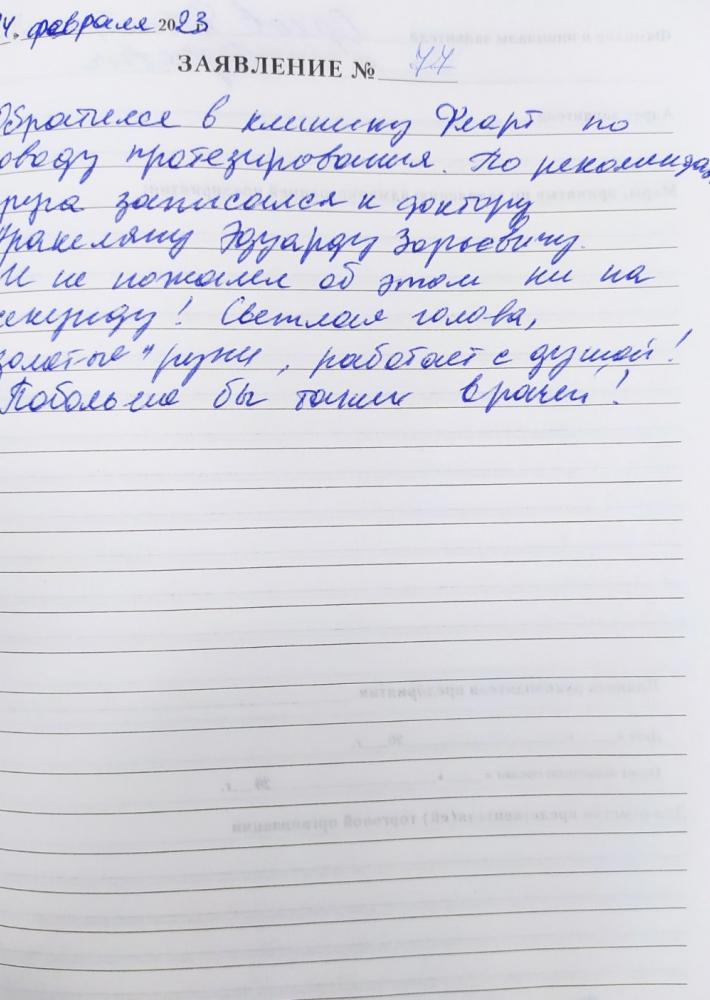 4. февраля 2023
ЗАЯВЛЕНИЕ № 77
братился в клинику Хеарт по
оводу протезирования. По рекомендац
руга записался к доктору
ракеляну Эдуарду Зорьевичу.
И не пожалел об этом ни на
екунду! Светлая голова,
золотые" руки, работает с душой!
Побольше бы таких врачей!